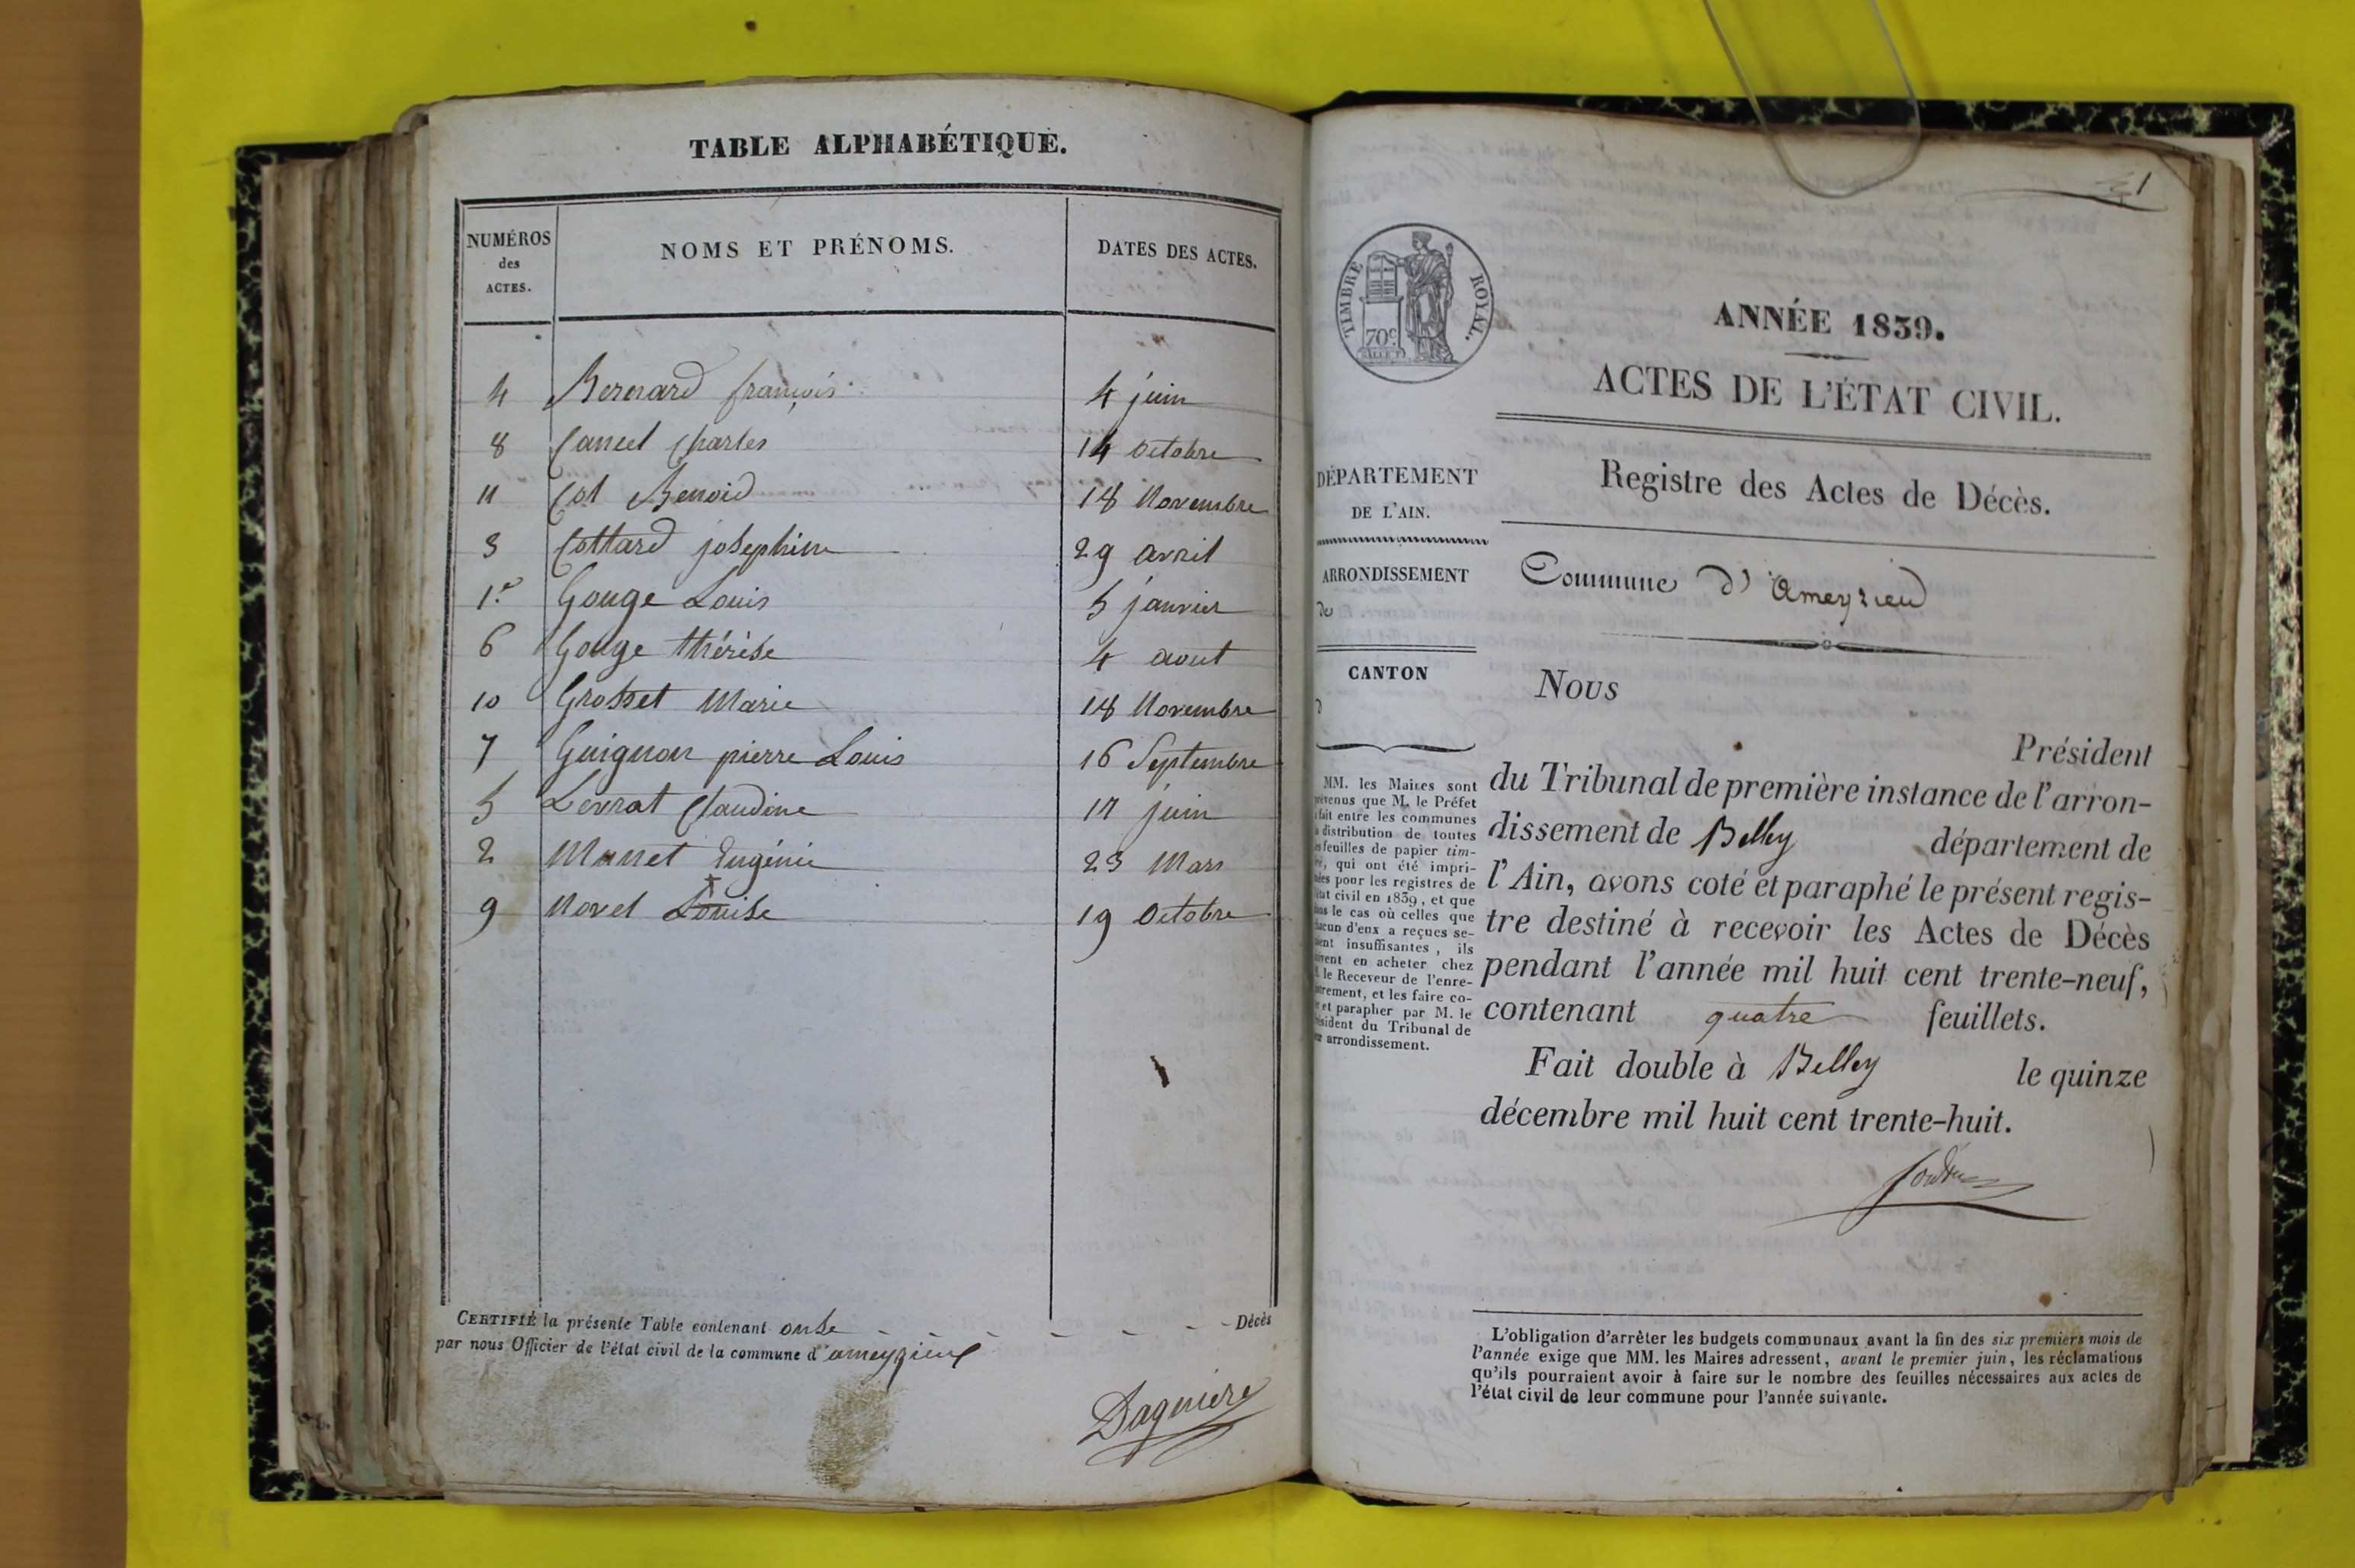 TABLE ALPHABÉTIQUE.
NUMÉROS
des
ACTES.
NOMS ET PRÉNOMS.
DATES DES ACTES.
4 Bernard françois 4 juin
8 Cancel Charles 14 octobre
11 Cot Benoid 18 Novembre
3 Cottard josephine 29 avril
1.er Gouge Louis 5 janvier
6 Gouge thérèse 4 aout
10 Grosset Marie 18 Novembre
7 Guignon pierre Louis 16 Septembre
5 Levrat Claudine juin
2 Monet Eugénie 23 Mars
9 Novel Louise 19 octobre
CERTIFIÉ la présente Table contenant onse Décès
par nous Officier de l'état civil de la commune d'ameyzieux
Daguiere
1
TIMBRE ROYAL.
70c
ANNÉE 1839.
ACTES DE L'ÉTAT CIVIL.
Registre des Actes de Décès.
DÉPARTEMENT
DE L'AIN.
ARRONDISSEMENT
de
CANTON
d
Commune d'Ameyzieu
MM. les Maires sont
prévenus que M. le Préfet
a fait entre les communes
la distribution de toutes
les feuilles de papier tim-
bré, qui ont été impri-
mées pour les registres de
l'état civil en 1839, et que
dans le cas où celles que
chacun d'eux a reçues se-
raient insuffisantes, ils
doivent en acheter chez
M. le Receveur de l'enre-
gistrement, et les faire co-
ter et parapher par M. le
Président du Tribunal de
leur arrondissement.
Nous
Président
du Tribunal de première instance de l'arron-
dissement de Belley département de
l'Ain, avons coté et paraphé le présent regis-
tre destiné à recevoir les Actes de Décès
pendant l'année mil huit cent trente-neuf,
contenant quatre feuillets.
Fait double à Belley le quinze
décembre mil huit cent trente-huit.
L'obligation d'arrêter les budgets communaux avant la fin des six premiers mois de
l'année exige que MM. les Maires adressent, avant le premier juin, les réclamations
qu'ils pourraient avoir à faire sur le nombre des feuilles nécessaires aux actes de
l'état civil de leur commune pour l'année suivante.